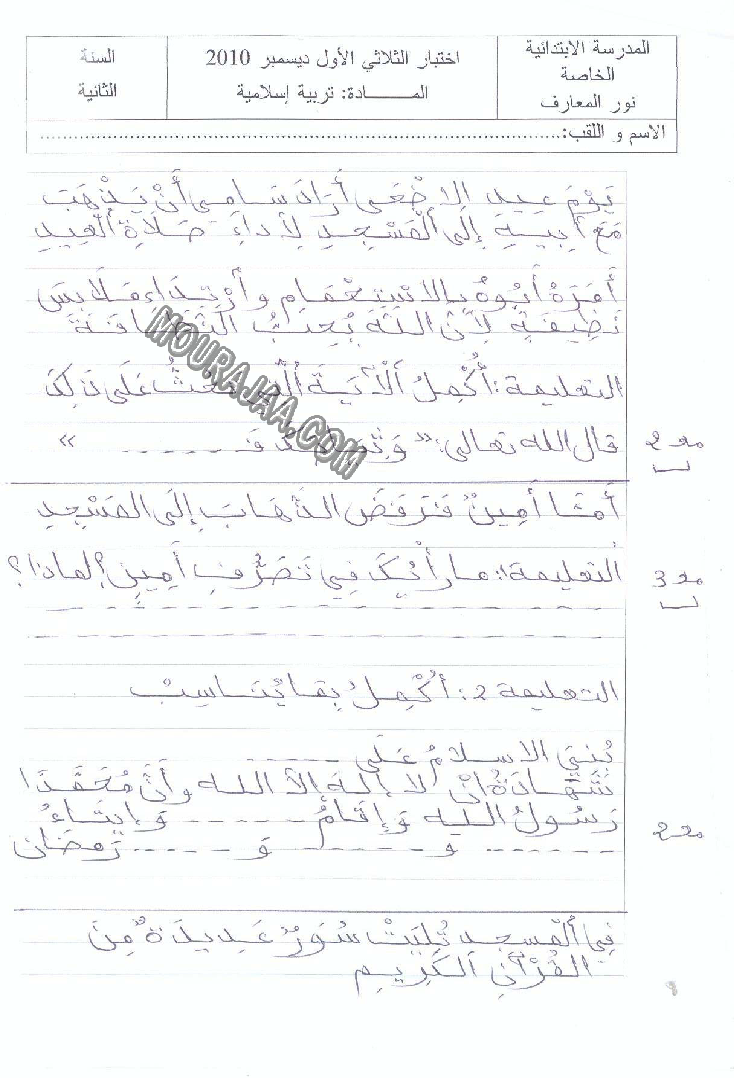 المدرسة الابتدائية
الخاصة
نور المعارف
اختبار الثلاثي الأول ديسمبر 2010
المـــــادة: تربية إسلامية
السنة
الثانية
الاسم و اللقب:
يَوْمَ عِيدِ الاِضْحَى أَرَادَ سَامِي أَنْ يَذْهَبَ
مَعَ أَبِيهِ إِلَى ألْمَسْجِدِ لِأَدَاءِ صَلَاةِ ألْعِيدِ
أَمَرَهُ أَبُوهُ بِالاسْتِحْمَامِ وَأرْتِدَاءِ مَلَابِسَ
نَظِيفَةٍ لِأَنَّ اللَّهَ يُحِبُّ النَّظَافَةَ
التعليمة: أُكْمِلُ ألْآيَةَ تَحُثُّ عَلَى ذَلِكَ
قال الله تعالى: « وَثِيَ ـــــــ »
مع 2
أَمَّا أَمِينُ فَرَفَضَ الذَّهَابَ إِلَى المَسْجِدِ
التعليمة 1: ما رَأْيُكَ فِي تَصَرُّفِ أَمِينٍ؟ لماذا؟
مع 3
التعليمة 2: أُكْمِلُ بِمَا يُنَاسِبُ
بُنِيَ الاسلامُ عَلَى
شَهَادَةُ انْ لا إله إلا الله وأَنَّ مُحَمَّدًا
رَسُولُ الله وَإِقَامُ وَإيتَاءُ
وَ وَ رَمضَان
مع 2
فِي ألْمسجدِ تُلِيَتْ سُوَرٌ عَدِيدَةٌ مِنَ
القُرْآنِ الكَرِيمِ
MOURAJAA.COM